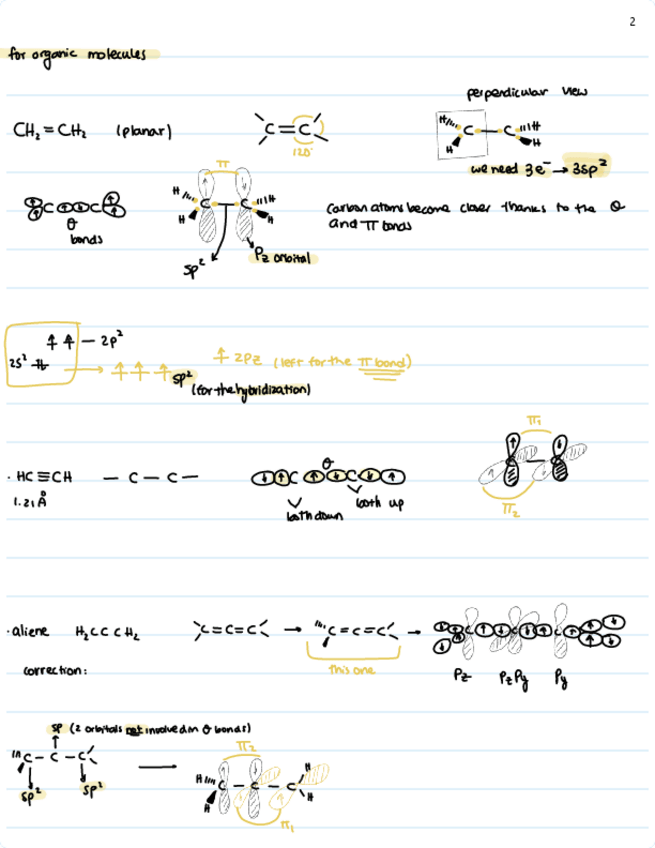 2
for organic molecules
perpendicular view
CH₂ = CH₂ (planar)
C=C
120°
H H C – C H H
we need 3e⁻ → 3sp²
π
C C
θ
bonds
H H C C H H
sp²
Pz orbital
Carbon atoms become closer thanks to the θ
and π bonds
2p²
2s²
sp²
(for the hybridization)
2pz (left for the π bond)
π₁
· HC≡CH – C – C –
1.21Å
C θ C
both down
both up
π₂
· allene H₂CCCH₂
C=C=C → C=C=C →
this one
Pz PzPy Py
correction:
sp (2 orbitals not involved in θ bonds)
C – C – C
sp² sp²
π₂
H H C – C – C H H
π₁